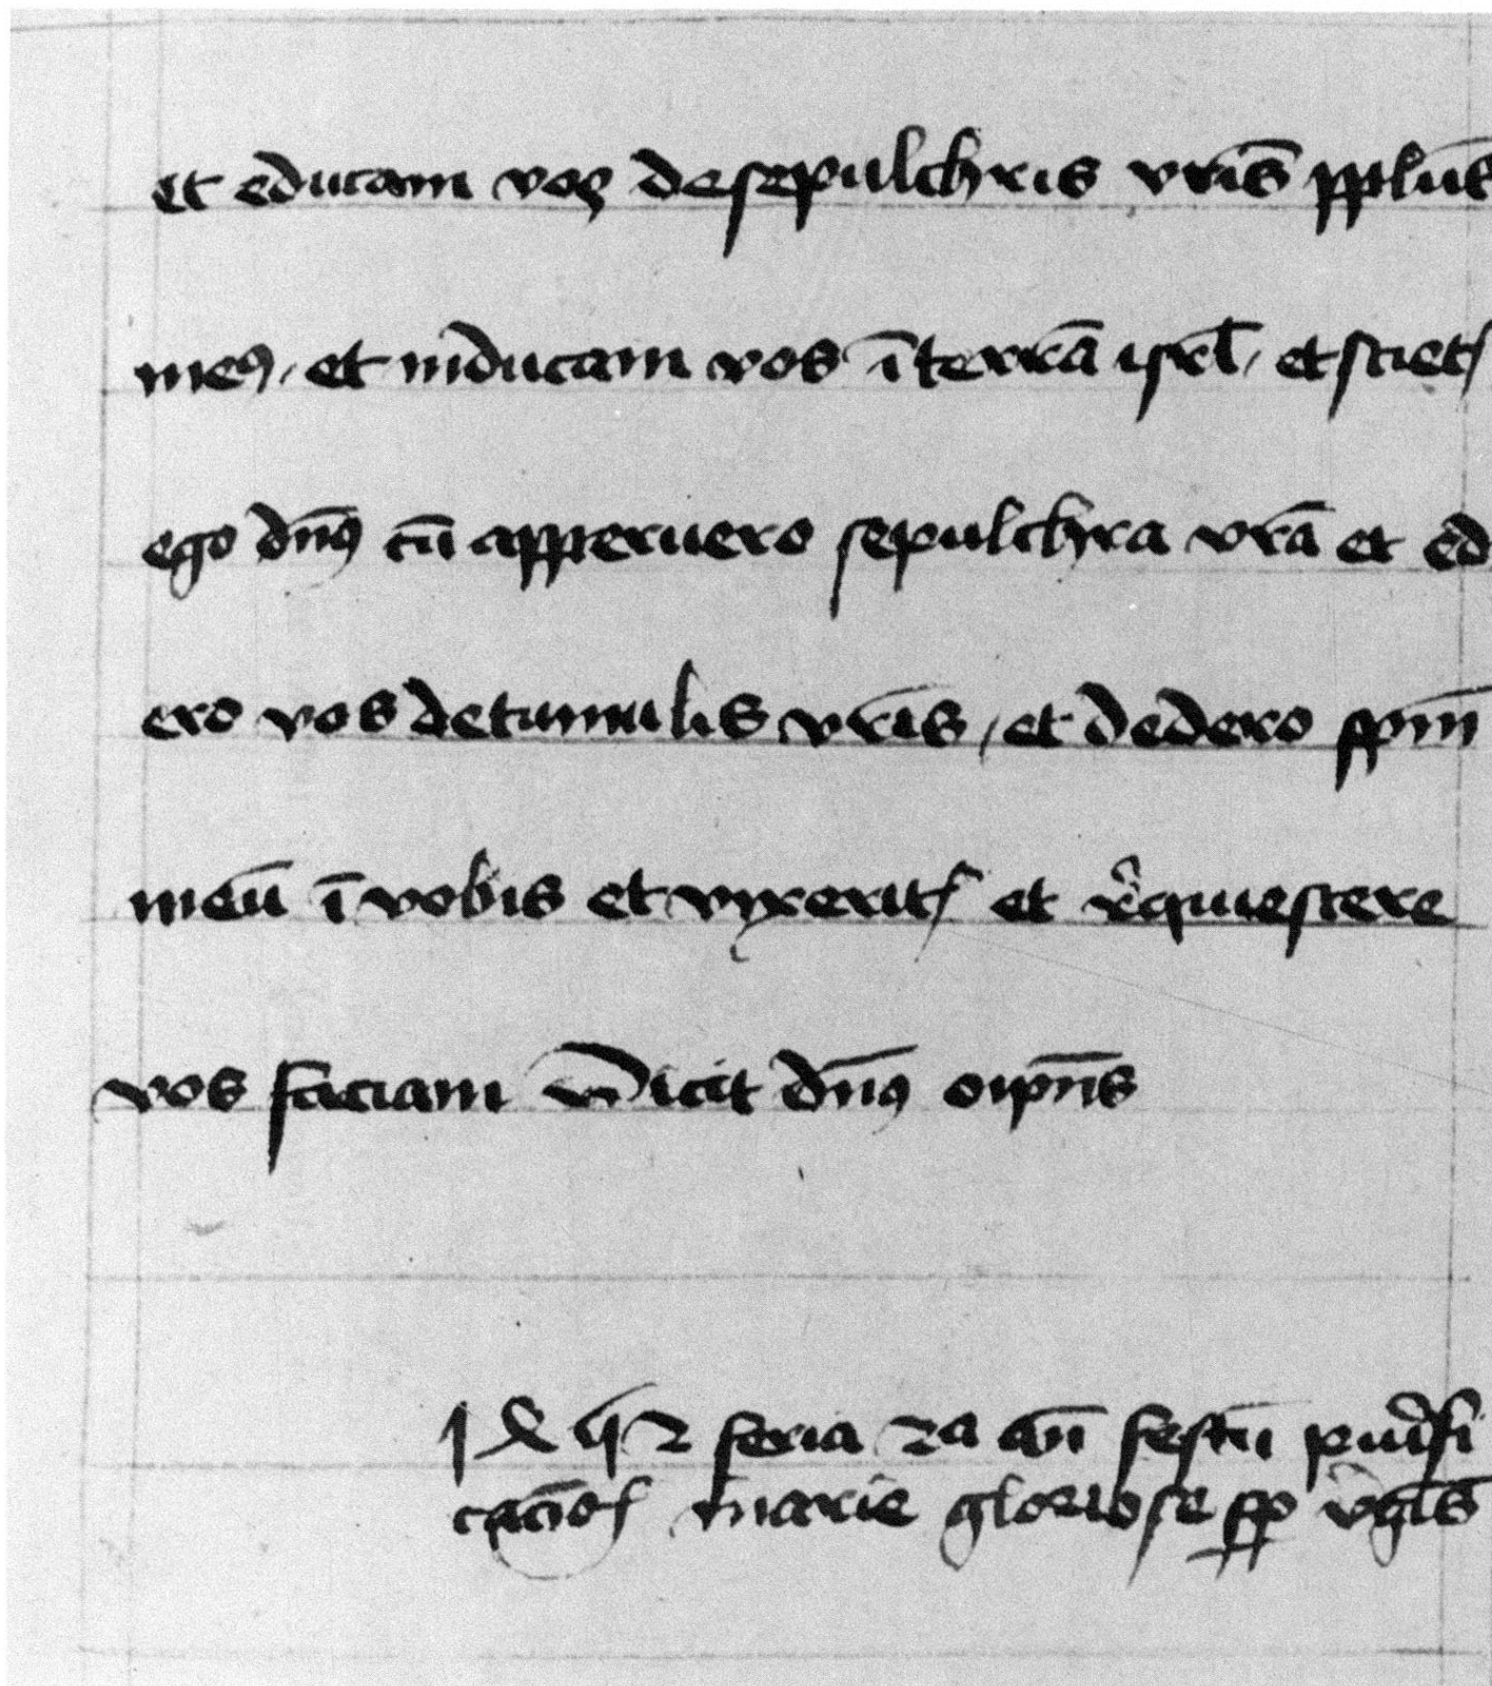 et educam vos de sepulchris vr̄is pplūs
meꝰ / et inducam vos ī terrā isrl̄ / et scietꝭ
ego dn̄ꝰ cū apperuero sepulchra vr̄a et ed
ero vos de tumulis vr̄is / et dedero spm̄
meū ī vobis et vixeritꝭ et req̇uiescere
vos faciam dicit dn̄ꝰ oīpn̄s
feria 2a an̄ festū purifi
cacīoꝭ marie gloriose sp̄ v̾gīs